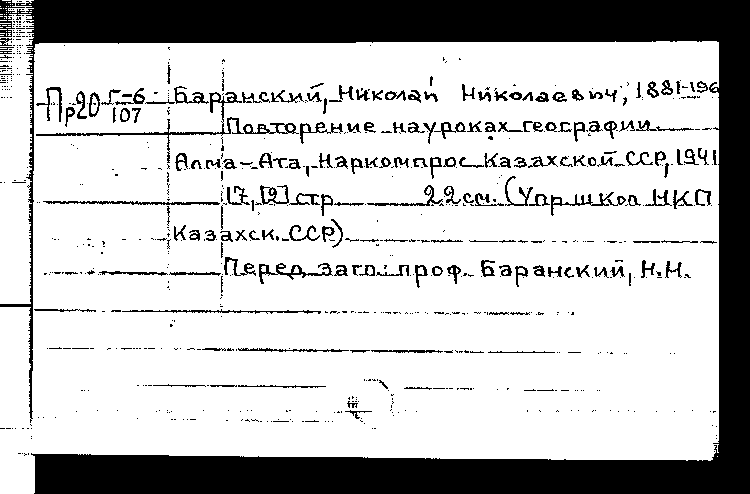 Пр20 Г-6 Баранский, Николай Николаевич, 1881-196
107
Повторение на уроках географии.
Алма-Ата, Наркомпрос Казахской ССР, 1941
17, [2] стр. 22 см. (Упр. школ НКП
Казахск. ССР)
Перед загл.: проф. Баранский, Н.Н.